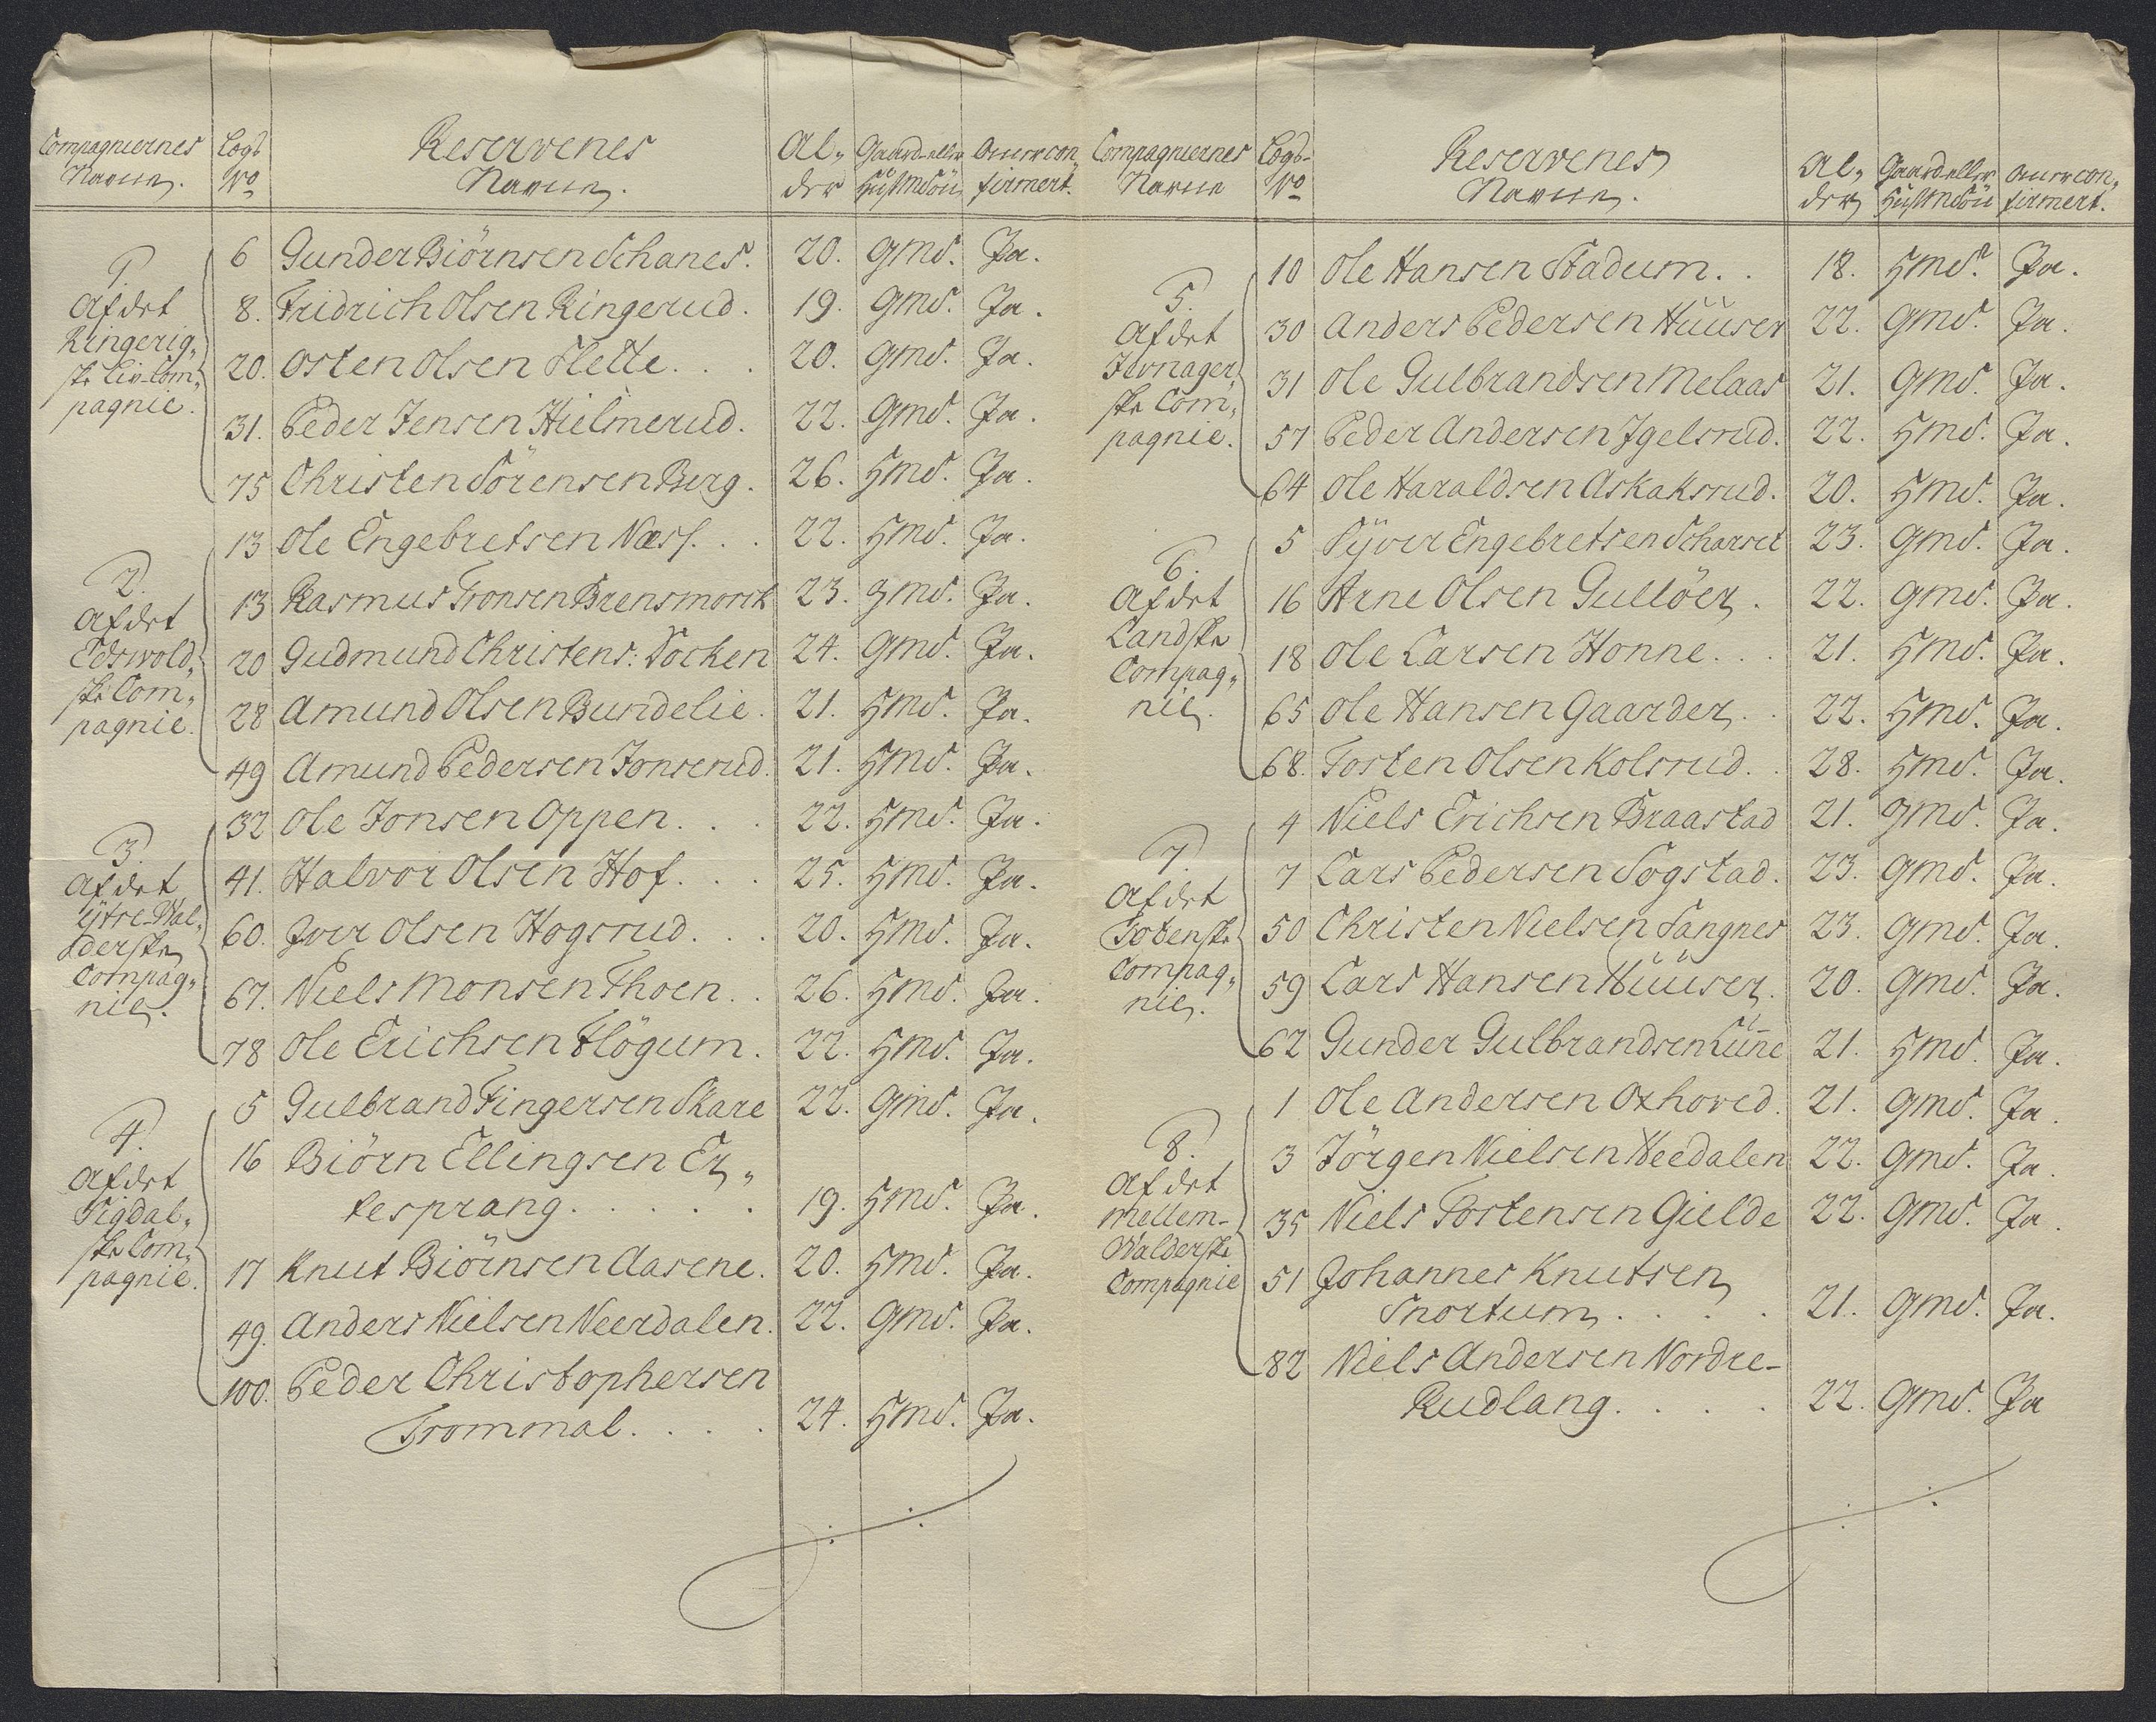 Compagniernes Navne. | Lægd No | Reservenes Navne. | Al- der | Gaard- eller Huusm: Sön | Om er con- firmert.
1. Af det Ringerig- ske Liv-Com- pagnie.
6 Gunder Biörnsen Schanes. 20. GmS. Ja.
8. Fridrich Olsen Ringerud. 19. GmS. Ja.
20. Osten Olsen Flette. . . 20. GmS. Ja.
31. Peder Jensen Hielmerud. 22. GmS. Ja.
75 Christen Sörensen Berg. 26. HmS. Ja.
2. Af det Edswold- ske Com- pagnie.
13 Ole Engebretsen Næss. . . 22. HmS. Ja.
13 Rasmus Tronsen Brensmorck 23. GmS. Ja.
20 Gudmund Christens: Tocken 24. GmS. Ja.
28 Amund Olsen Bundelie. 21. HmS. Ja.
49 Amund Pedersen Jonserud. 21. HmS. Ja.
3. Af det Ÿtre-Wal- derske Compag- nie.
32 Ole Jonsen Oppen. . . 22. HmS. Ja.
41. Halvor Olsen Hof. . . 25. HmS. Ja.
60. Iver Olsen Hogsrud. . . 20. HmS. Ja.
67. Niels Monsen Thoen. . 26. HmS. Ja.
78 Ole Erichsen Flögum. 22. HmS. Ja.
4. Af det Sigdal- ske Com- pagnie.
5 Gulbrand Fingersen Skare 22. GmS. Ja.
16 Biörn Ellingsen Er-
tesprang. . . . . 19. HmS. Ja.
17 Knut Biörnsen Aasene. 20. HmS. Ja.
49. Anders Nielsen Neerdalen. 22. GmS. Ja.
100. Peder Christophersen
Trommal. . . . 24. HmS. Ja.
Compagniernes Navne | Lægd- No | Reservenes Navne. | Al- der | Gaard- eller Huusm: Sön | Om er con- firmert.
5. Af det Jevnager- ske Com- pagnie.
10 Ole Hansen Stadum. . 18. HmS. Ja.
30 Anders Pedersen Huuser 22. GmS. Ja.
31 Ole Gulbrandsen Melaas 21. GmS. Ja.
57 Peder Andersen Igelsrud. 22. HmS. Ja.
64 Ole Haraldsen Askaksrud. 20. HmS. Ja.
6. Af det Landske Compag- nie.
5 Syver Engebretsen Scharset 23. GmS. Ja.
16 Arne Olsen Gullöer. 22. GmS. Ja.
18 Ole Larsen Honne. . . 21. HmS. Ja.
65 Ole Hansen Gaarder. . 22. HmS. Ja.
68. Tosten Olsen Kolsrud. . 28. HmS. Ja.
7. Af det Totenske Compag- nie.
4 Niels Erichsen Braastad 21. GmS. Ja.
7 Lars Pedersen Sogstad. 23. GmS. Ja.
50 Christen Nielsen Sangnes 23. GmS. Ja.
59 Lars Hansen Huuser. 20. GmS. Ja.
62 Gunder Gulbrandsen Lüne 21. HmS. Ja.
8. Af det Mellem- Walderske Compagnie
1 Ole Andersen Oxhoved. 21. GmS. Ja.
3 Jörgen Nielsen Heedalen 22. GmS. Ja.
35 Niels Tostensen Gielde 22. GmS. Ja.
51 Johannes Knutsen
Snortum. . . . 21. GmS. Ja.
82 Niels Andersen Nordre-
Rudlang. . . . 22. GmS. Ja